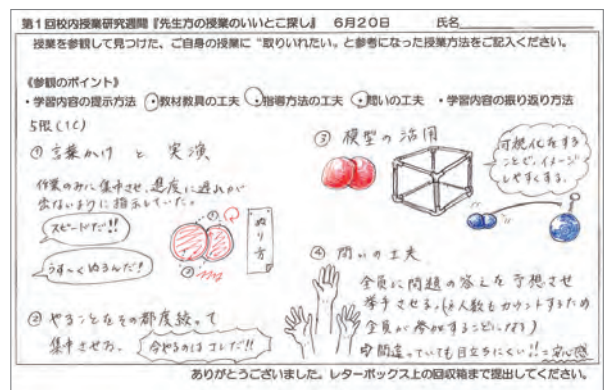 第1回校内授業研究週間『先生方の授業のいいとこ探し』 6月20日 氏名
授業を参観して見つけた、ご自身の授業に“取りいれたい”と参考になった授業方法をご記入ください。
《参観のポイント》
・学習内容の提示方法 ・教材教具の工夫 ・指導方法の工夫 ・問いの工夫 ・学習内容の振り返り方法
5限(1C)
① 言葉かけ と 実演
作業のみに集中させ、進度に遅れが
出ないように指示していた。
スピードだ!!
うす〜くぬるんだ!
①
②
ぬり方
② やることをその都度絞って
集中させる。
今やるのは コレだ!!
③ 模型の活用
可視化をする
ことで、イメージ
しやすくする。
④ 問いの工夫
全員に問題の答えを予想させ
挙手させる。(人数もカウントするため
全員が参加することになる)
間違っていても目立ちにくい!!=安心感
ありがとうございました。レターボックス上の回収箱まで提出してください。